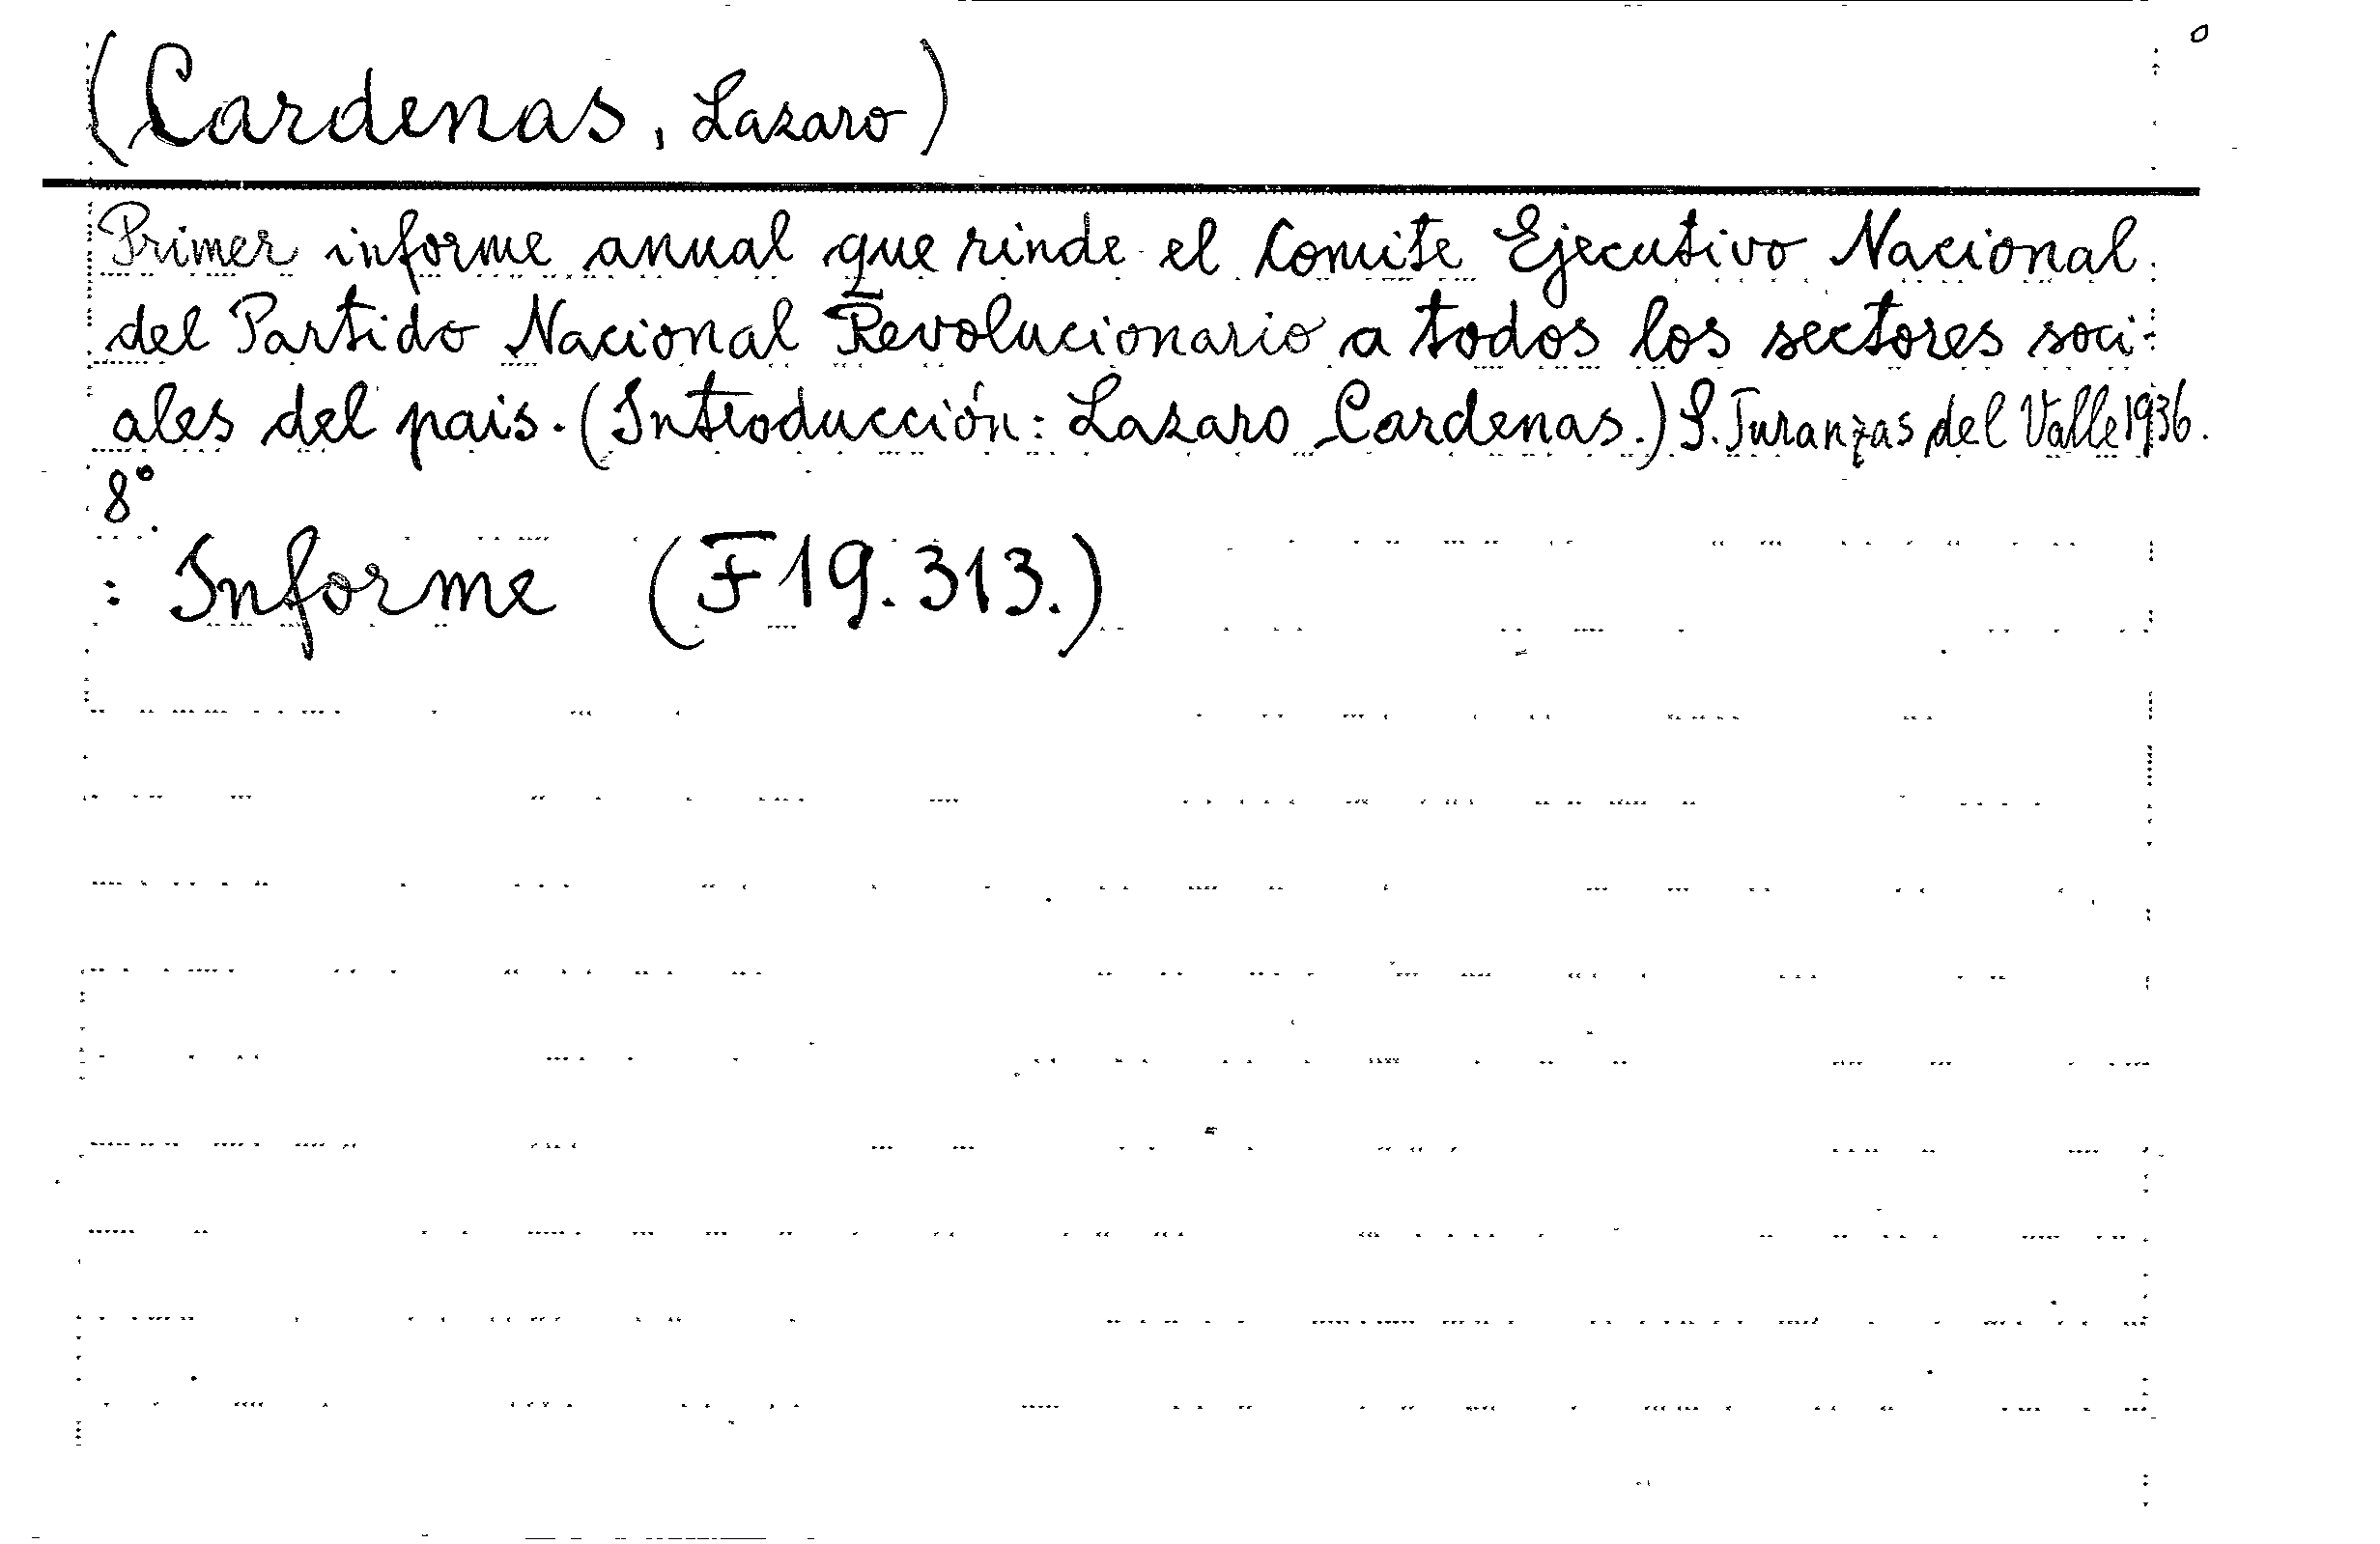 (Cardenas, Lazaro)
Primer informe anual que rinde el Comite Ejecutivo Nacional
del Partido Nacional Revolucionario a todos los sectores soci-
ales del pais. (Introducción: Lazaro Cardenas.) S. Turanzas del Valle 1936.
8°.
: Informe (F 19.313.)